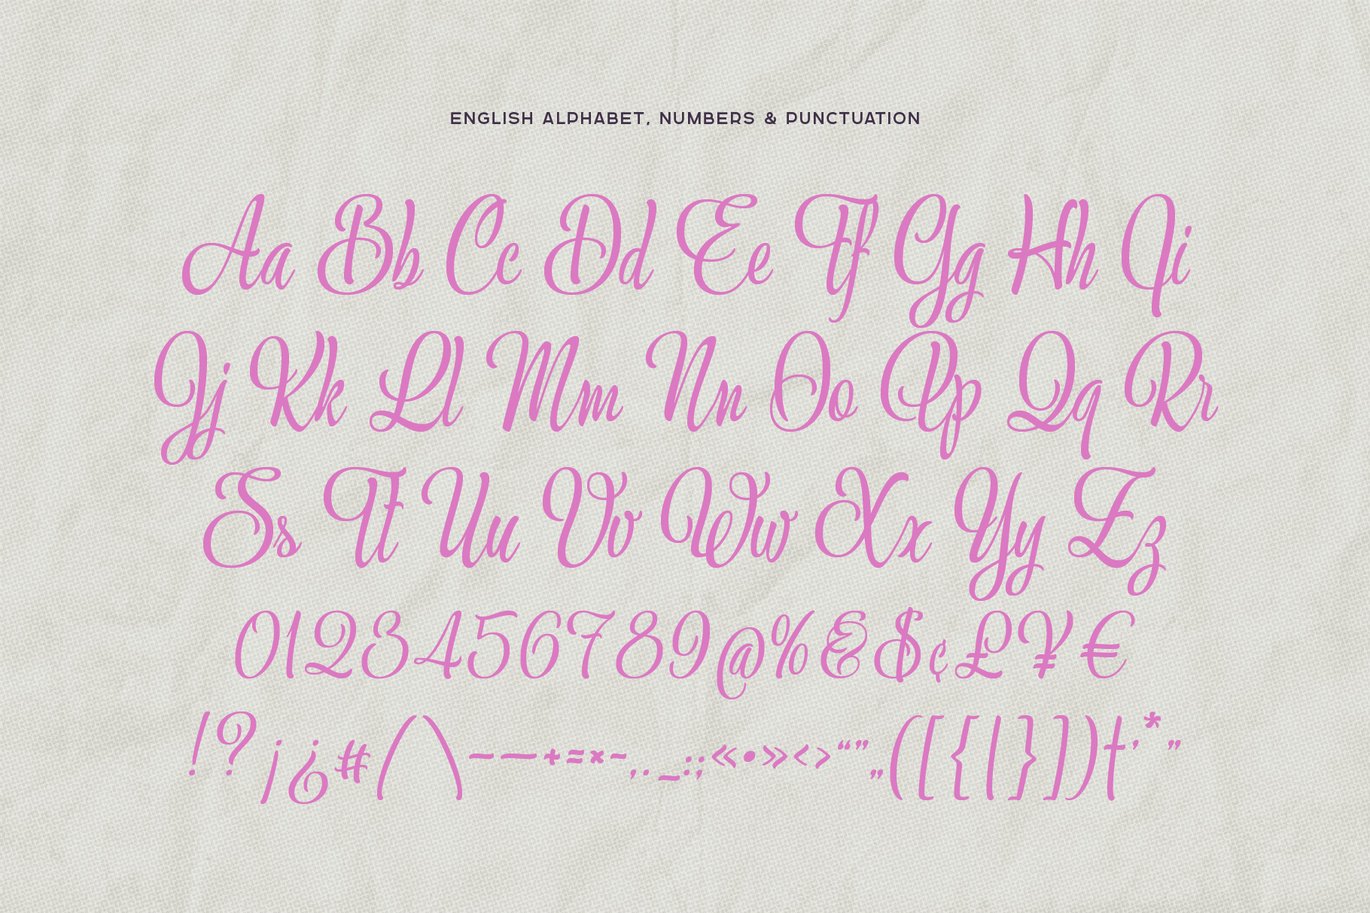 ENGLISH ALPHABET, NUMBERS & PUNCTUATION
Aa Bb Cc Dd Ee Ff Gg Hh Ii
Jj Kk Ll Mm Nn Oo Pp Qq Rr
Ss Tt Uu Vv Ww Xx Yy Zz
0123456789@%&$¢£¥€
!?¡¿#/\–—+=≈×~,.._:;«•»‹›“”„([{|}])†’*"